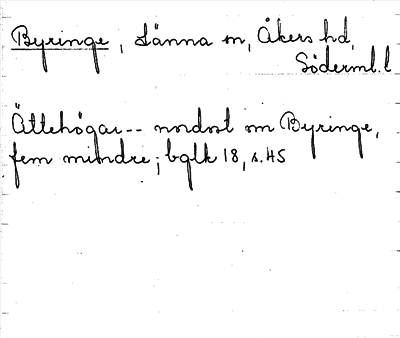 Byringe, Länna sn, Åkers hd,
Söderml. l
Ättehögar -- nordost om Byringe,
fem mindre; bglk 18, s. 45